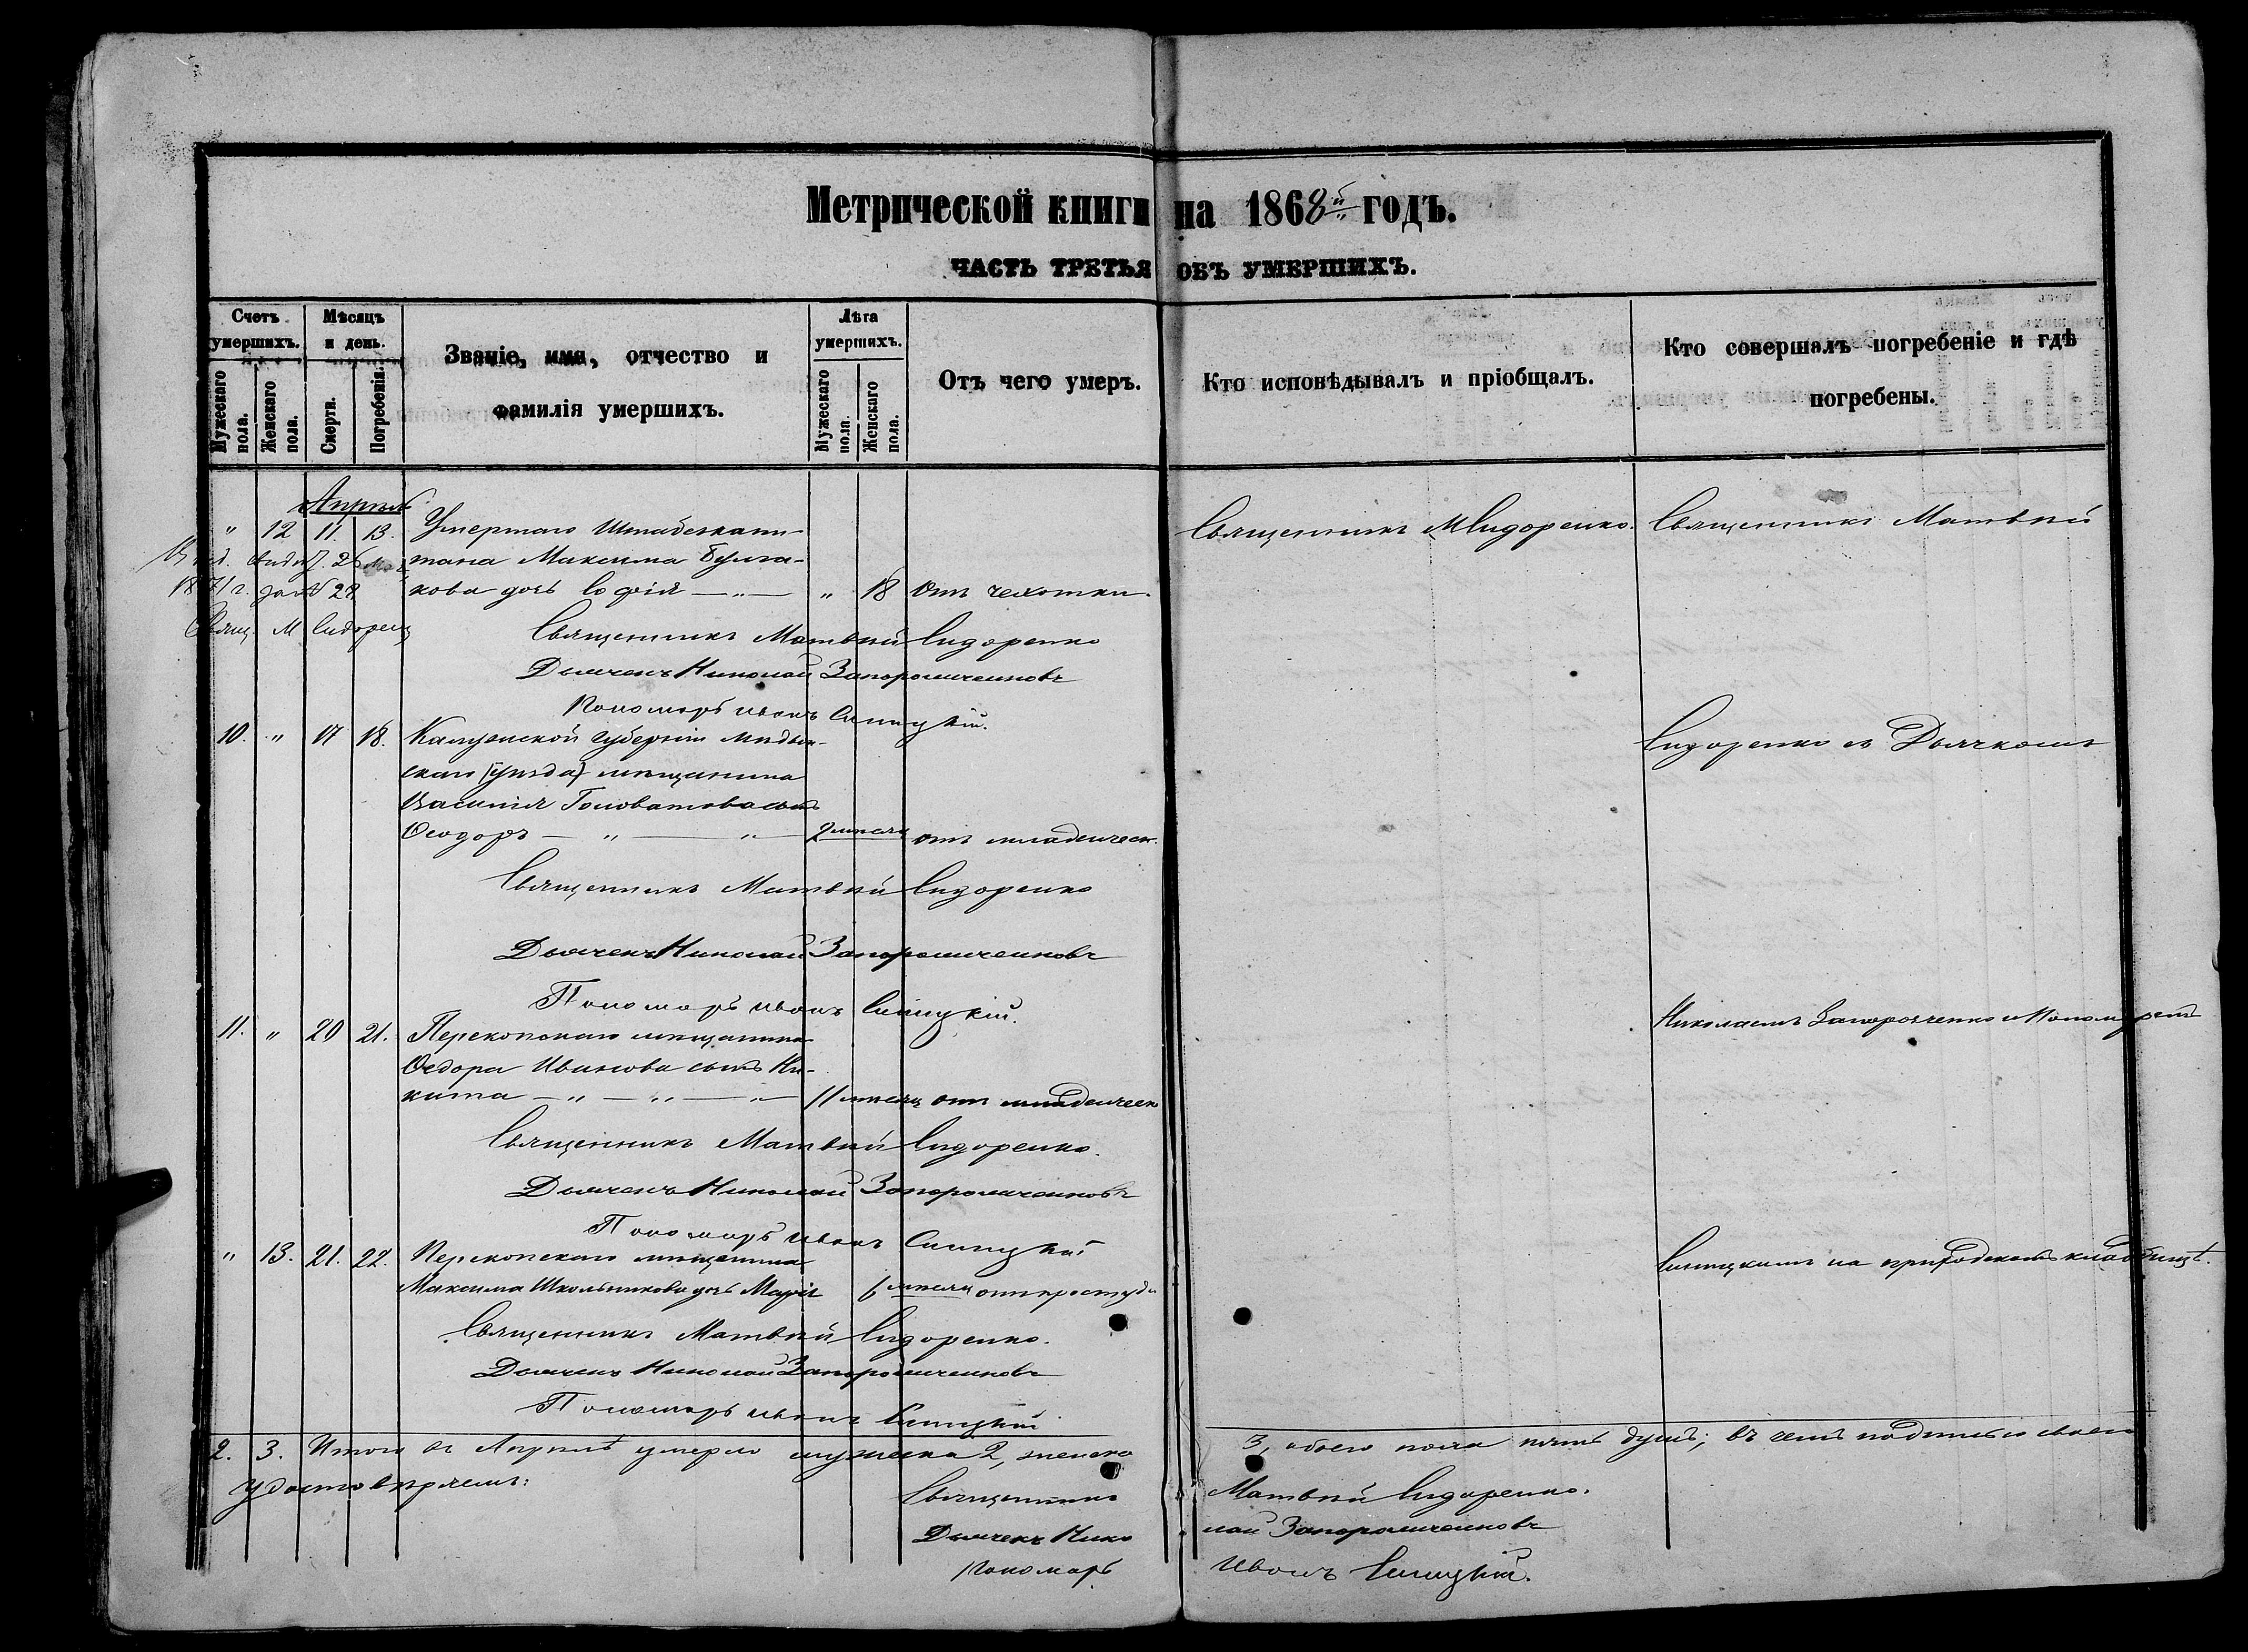 Метрической книги на 1868й годъ.
ЧАСТЬ ТРЕТЬЯ ОБЪ УМЕРШИХЪ.
Счетъ умершихъ.
Мужескаго пола.
Женскаго пола.
Мѣсяцъ и день.
Смерти.
Погребенія.
Званіе, имя, отчество и
фамилія умершихъ.
Лѣта умершихъ.
Мужескаго пола.
Женскаго пола.
Отъ чего умеръ.
Кто исповѣдывалъ и пріобщалъ.
Кто совершалъ погребеніе и гдѣ
погребены.
Апрѣль
" 12 11. 13. Умершаго Штабскапи-
тана Максима Булга-
кова дочь Софія — " — " 18 Отъ чехотки.
Священникъ М Сидоренко.
Священникъ Матвѣй
Вид. 26
1871 г. 28
Свящ. М Сидорен
Священникъ Матвѣй Сидоренко
Дьячекъ Николай Запорожченковъ
Пономарь Иванъ Синицкій.
10. " 17 18. Калужской губерніи Мидын-
скаго (уѣзда) мѣщанина
Василія Головатова сынъ
Ѳеодоръ — " — " — 2 мѣсяц отъ младенческ.
Сидоренко съ Дьячкомъ
Священникъ Матвѣй Сидоренко
Дьячекъ Николай Запорожченковъ
Пономарь Иванъ Синицкій.
11. " 20 21. Перекопскаго мѣщанина
Ѳедора Иванова сынъ Ни-
кита — " — " — " — 11 мѣсяц отъ младенческ
Николаемъ Запорожченко и Пономаремъ
Священникъ Матвѣй Сидоренко.
Дьячекъ Николай Запорожченковъ
Пономарь Иванъ Синицкій
" 13. 21. 22. Перекопскаго мѣщанина
Максима Школьникова дочь Марія 6 мѣсяц отъ простуды
Синицкимъ на приходскомъ кладбищѣ.
Священникъ Матвѣй Сидоренко.
Дьячекъ Николай Запорожченковъ
Пономарь Иванъ Синицкій
2. 3. Итого въ Апрѣлѣ умерло мужеска 2, женска 3, обоего пола пять душъ; въ чемъ подписью своею
удостовѣряемъ:
Священникъ Матвѣй Сидоренко.
Дьячекъ Николай Запорожченковъ
Пономарь Иванъ Синицкій.